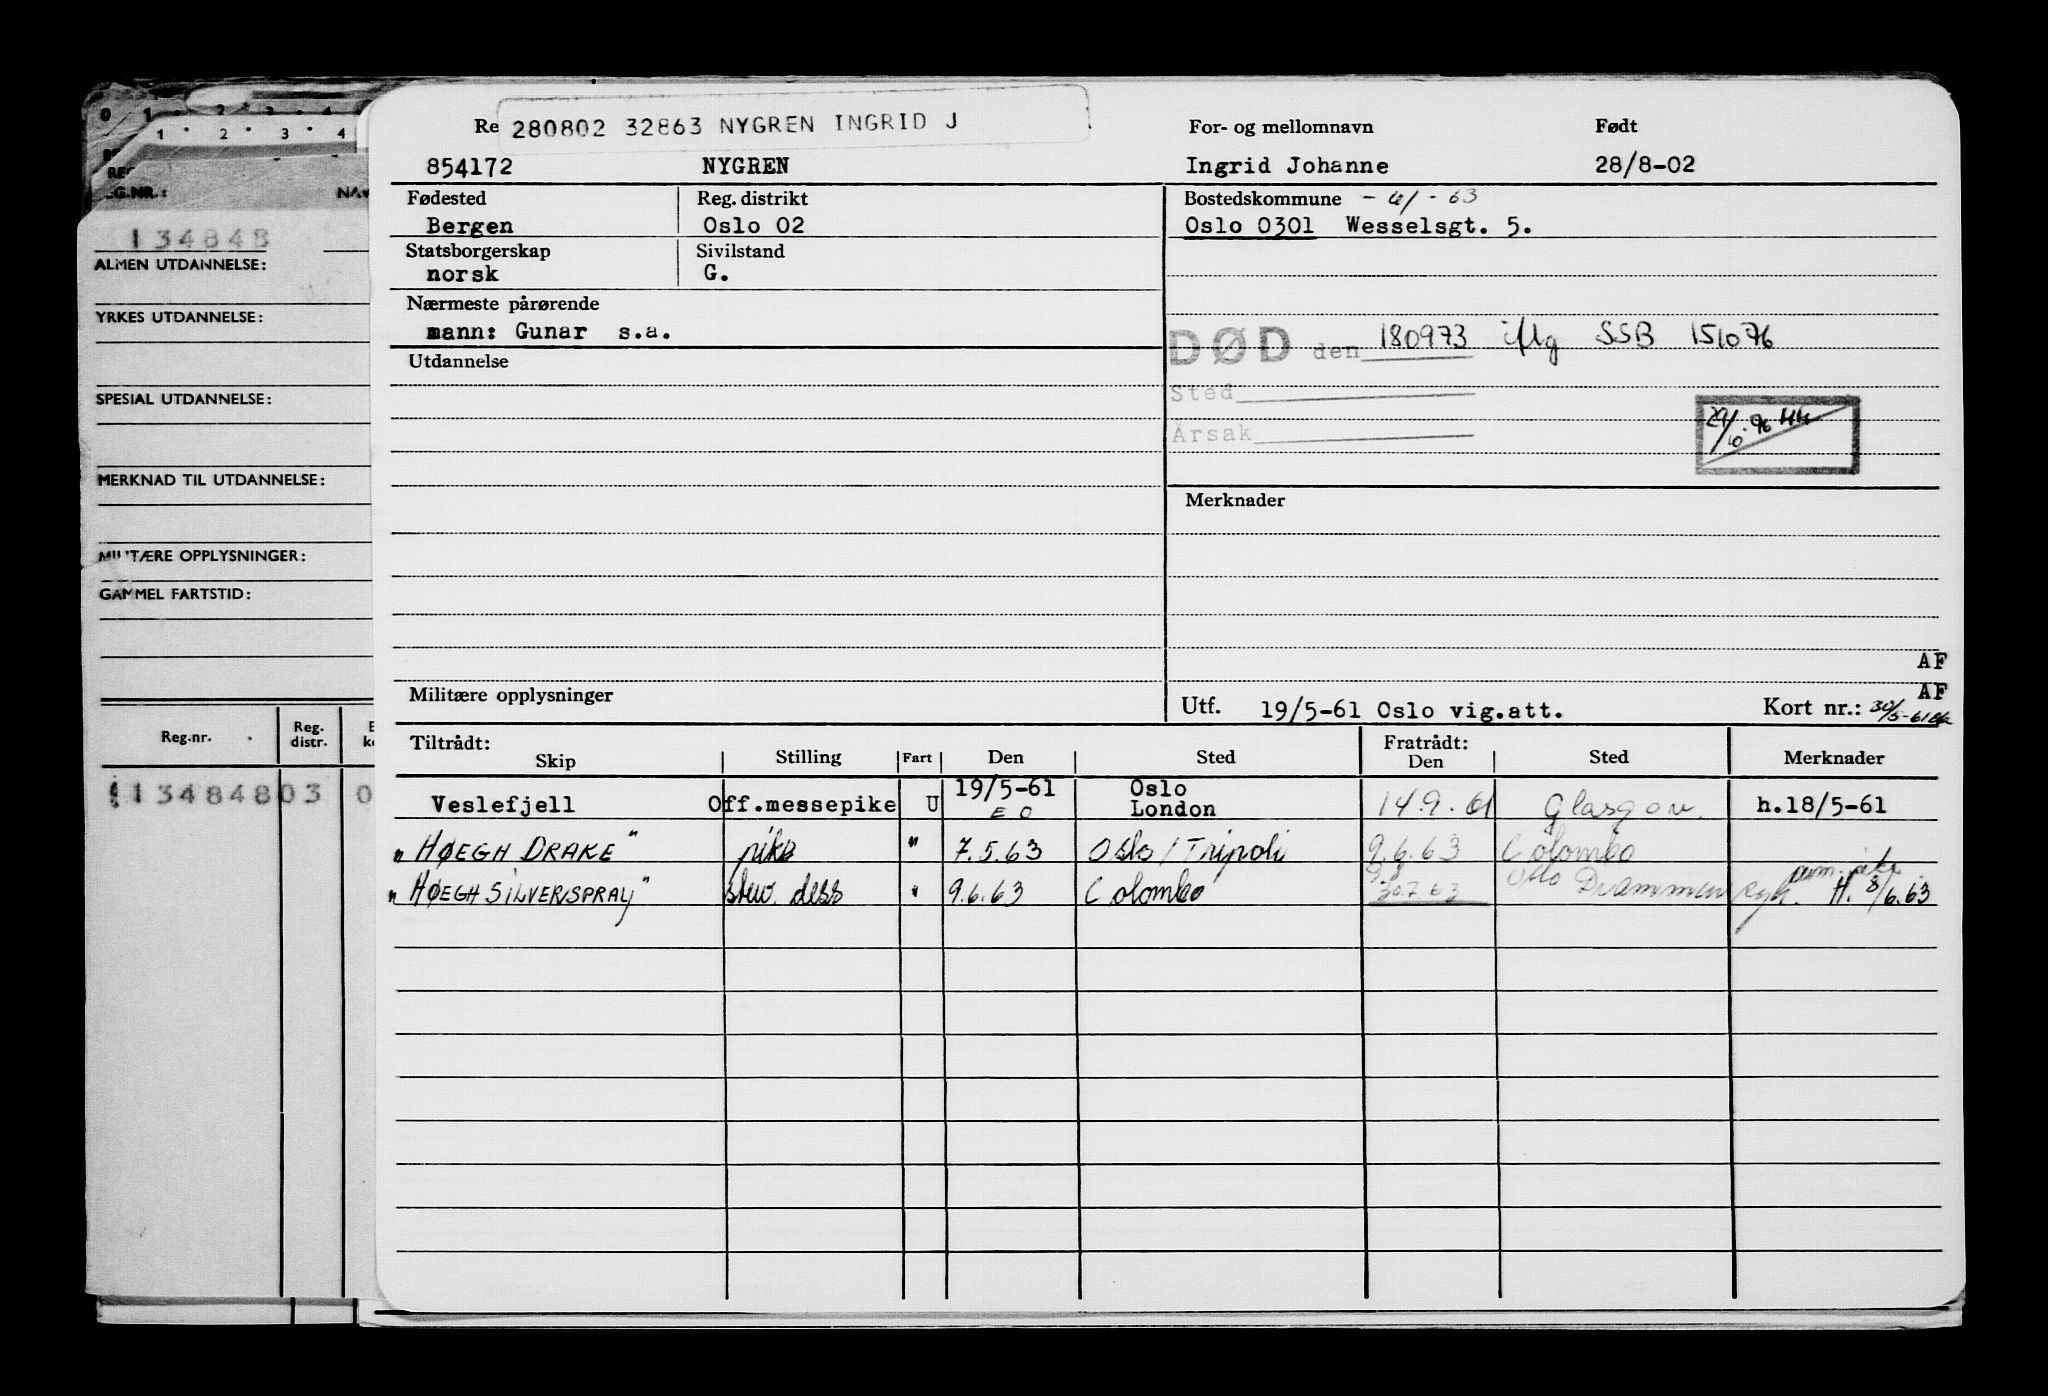 280802 32863 NYGREN INGRID J
Re
For- og mellomnavn
Født
854172
NYGREN
Ingrid Johanne
28/8-02
Fødested
Reg. distrikt
Bostedskommune
Bergen
Oslo 02
Oslo 0301 Wesselsgt. 5.
Statsborgerskap
Sivilstand
norsk
G.
Nærmeste pårørende
mann: Gunar s.a.
DØD den 180973 iflg SSB 151076
Utdannelse
Sted
Årsak
Merknader
AF
AF
Militære opplysninger
Utf. 19/5-61 Oslo vig.att.
Kort nr.: 30/5-61
Tiltrådt:
Fratrådt:
Skip
Stilling
Fart
Den
Sted
Den
Sted
Merknader
Veslefjell Off.messepike U 19/5-61 Oslo London 14.9.61 Glasgow. h.18/5-61
EO
„HØEGH DRAKE" pike " 7.5.63 Oslo / Tripoli 9.6.63 Colombo
„HØEGH SILVERSPRAY" stew. dess " 9.6.63 Colombo 30.7.63 Oslo Drammen syk. H. 8/6.63
0 1 2 3 4
1 2 3 4
REG.NR.:
NAV
134848
ALMEN UTDANNELSE:
YRKES UTDANNELSE:
SPESIAL UTDANNELSE:
MERKNAD TIL UTDANNELSE:
MILITÆRE OPPLYSNINGER:
GAMMEL FARTSTID:
Reg.nr.
Reg. distr.
113484803 0